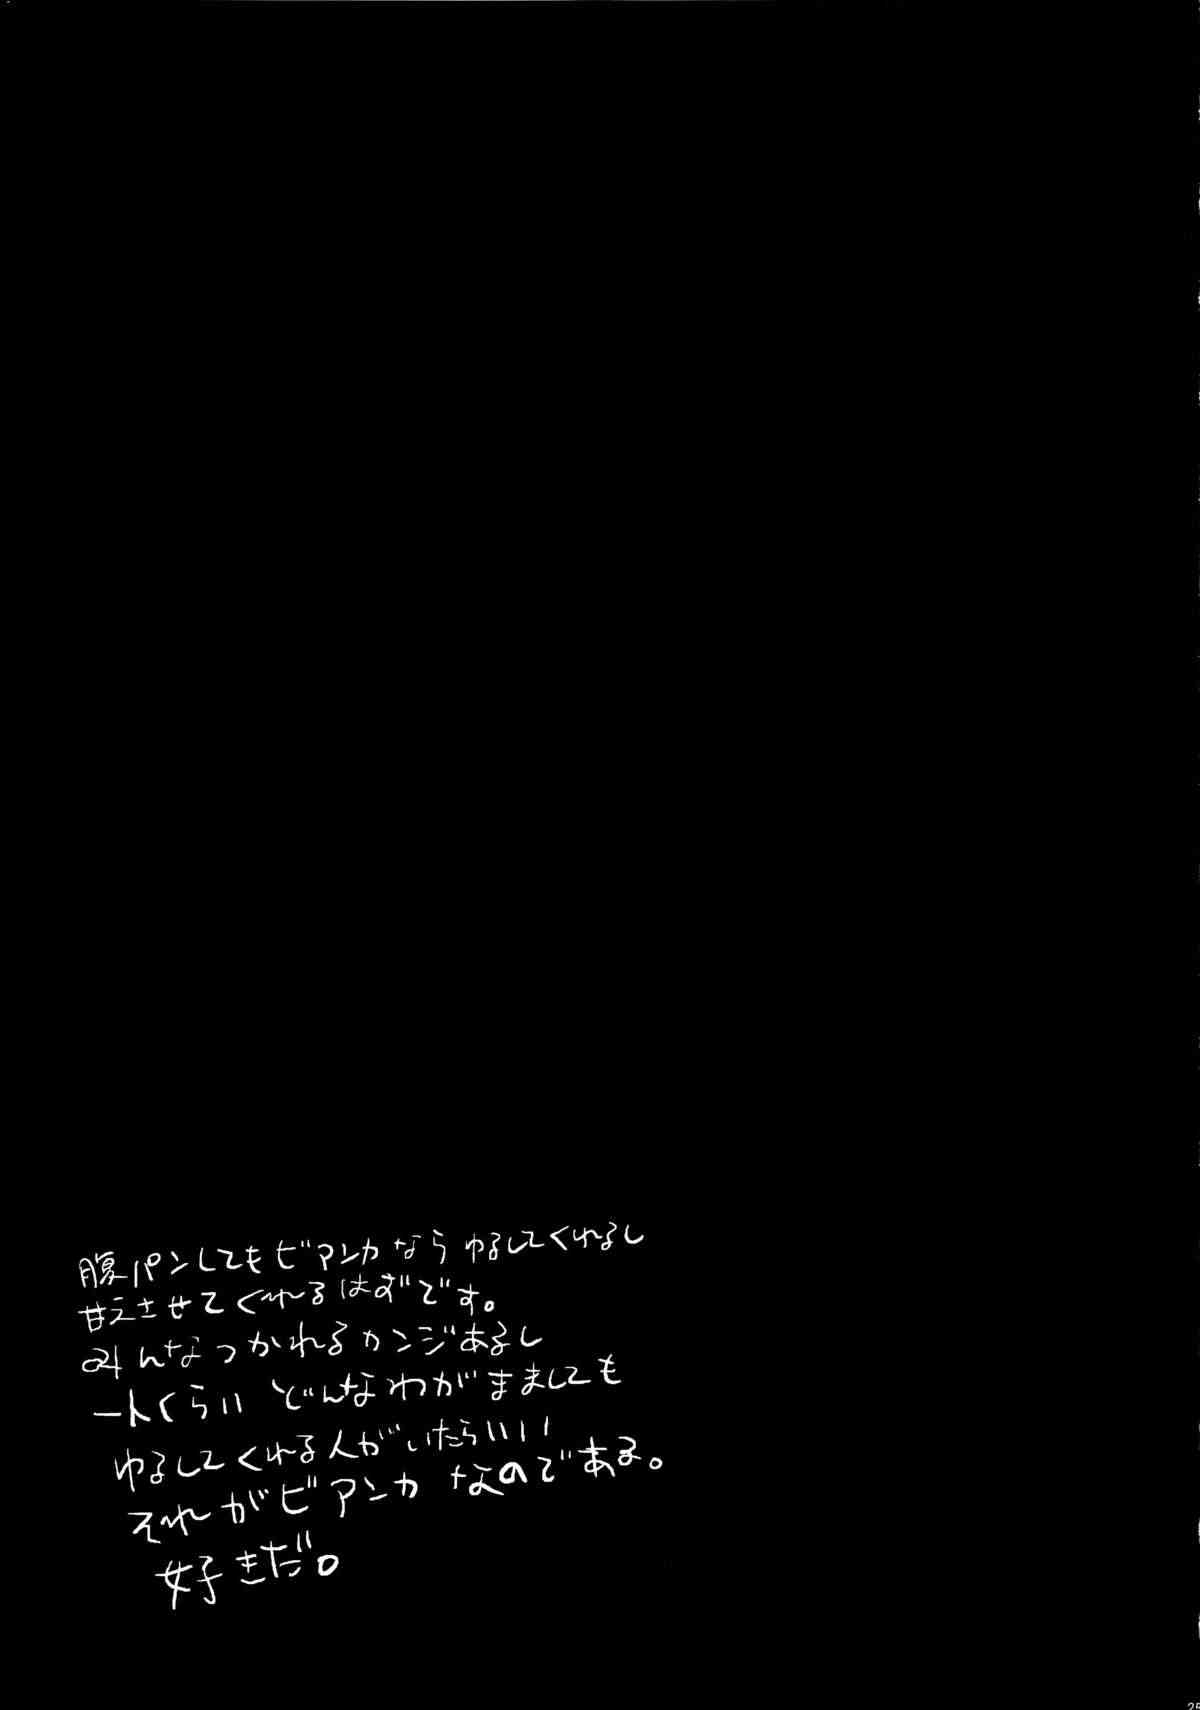 腹パンしてもビアンカならゆるしてくれるし
甘えさせてくれるはずです。
みんなつかれるカンジあるし
一人くらい どんなわがまましても
ゆるしてくれる人がいたらいい
それがビアンカなのである。
好きだ。
25